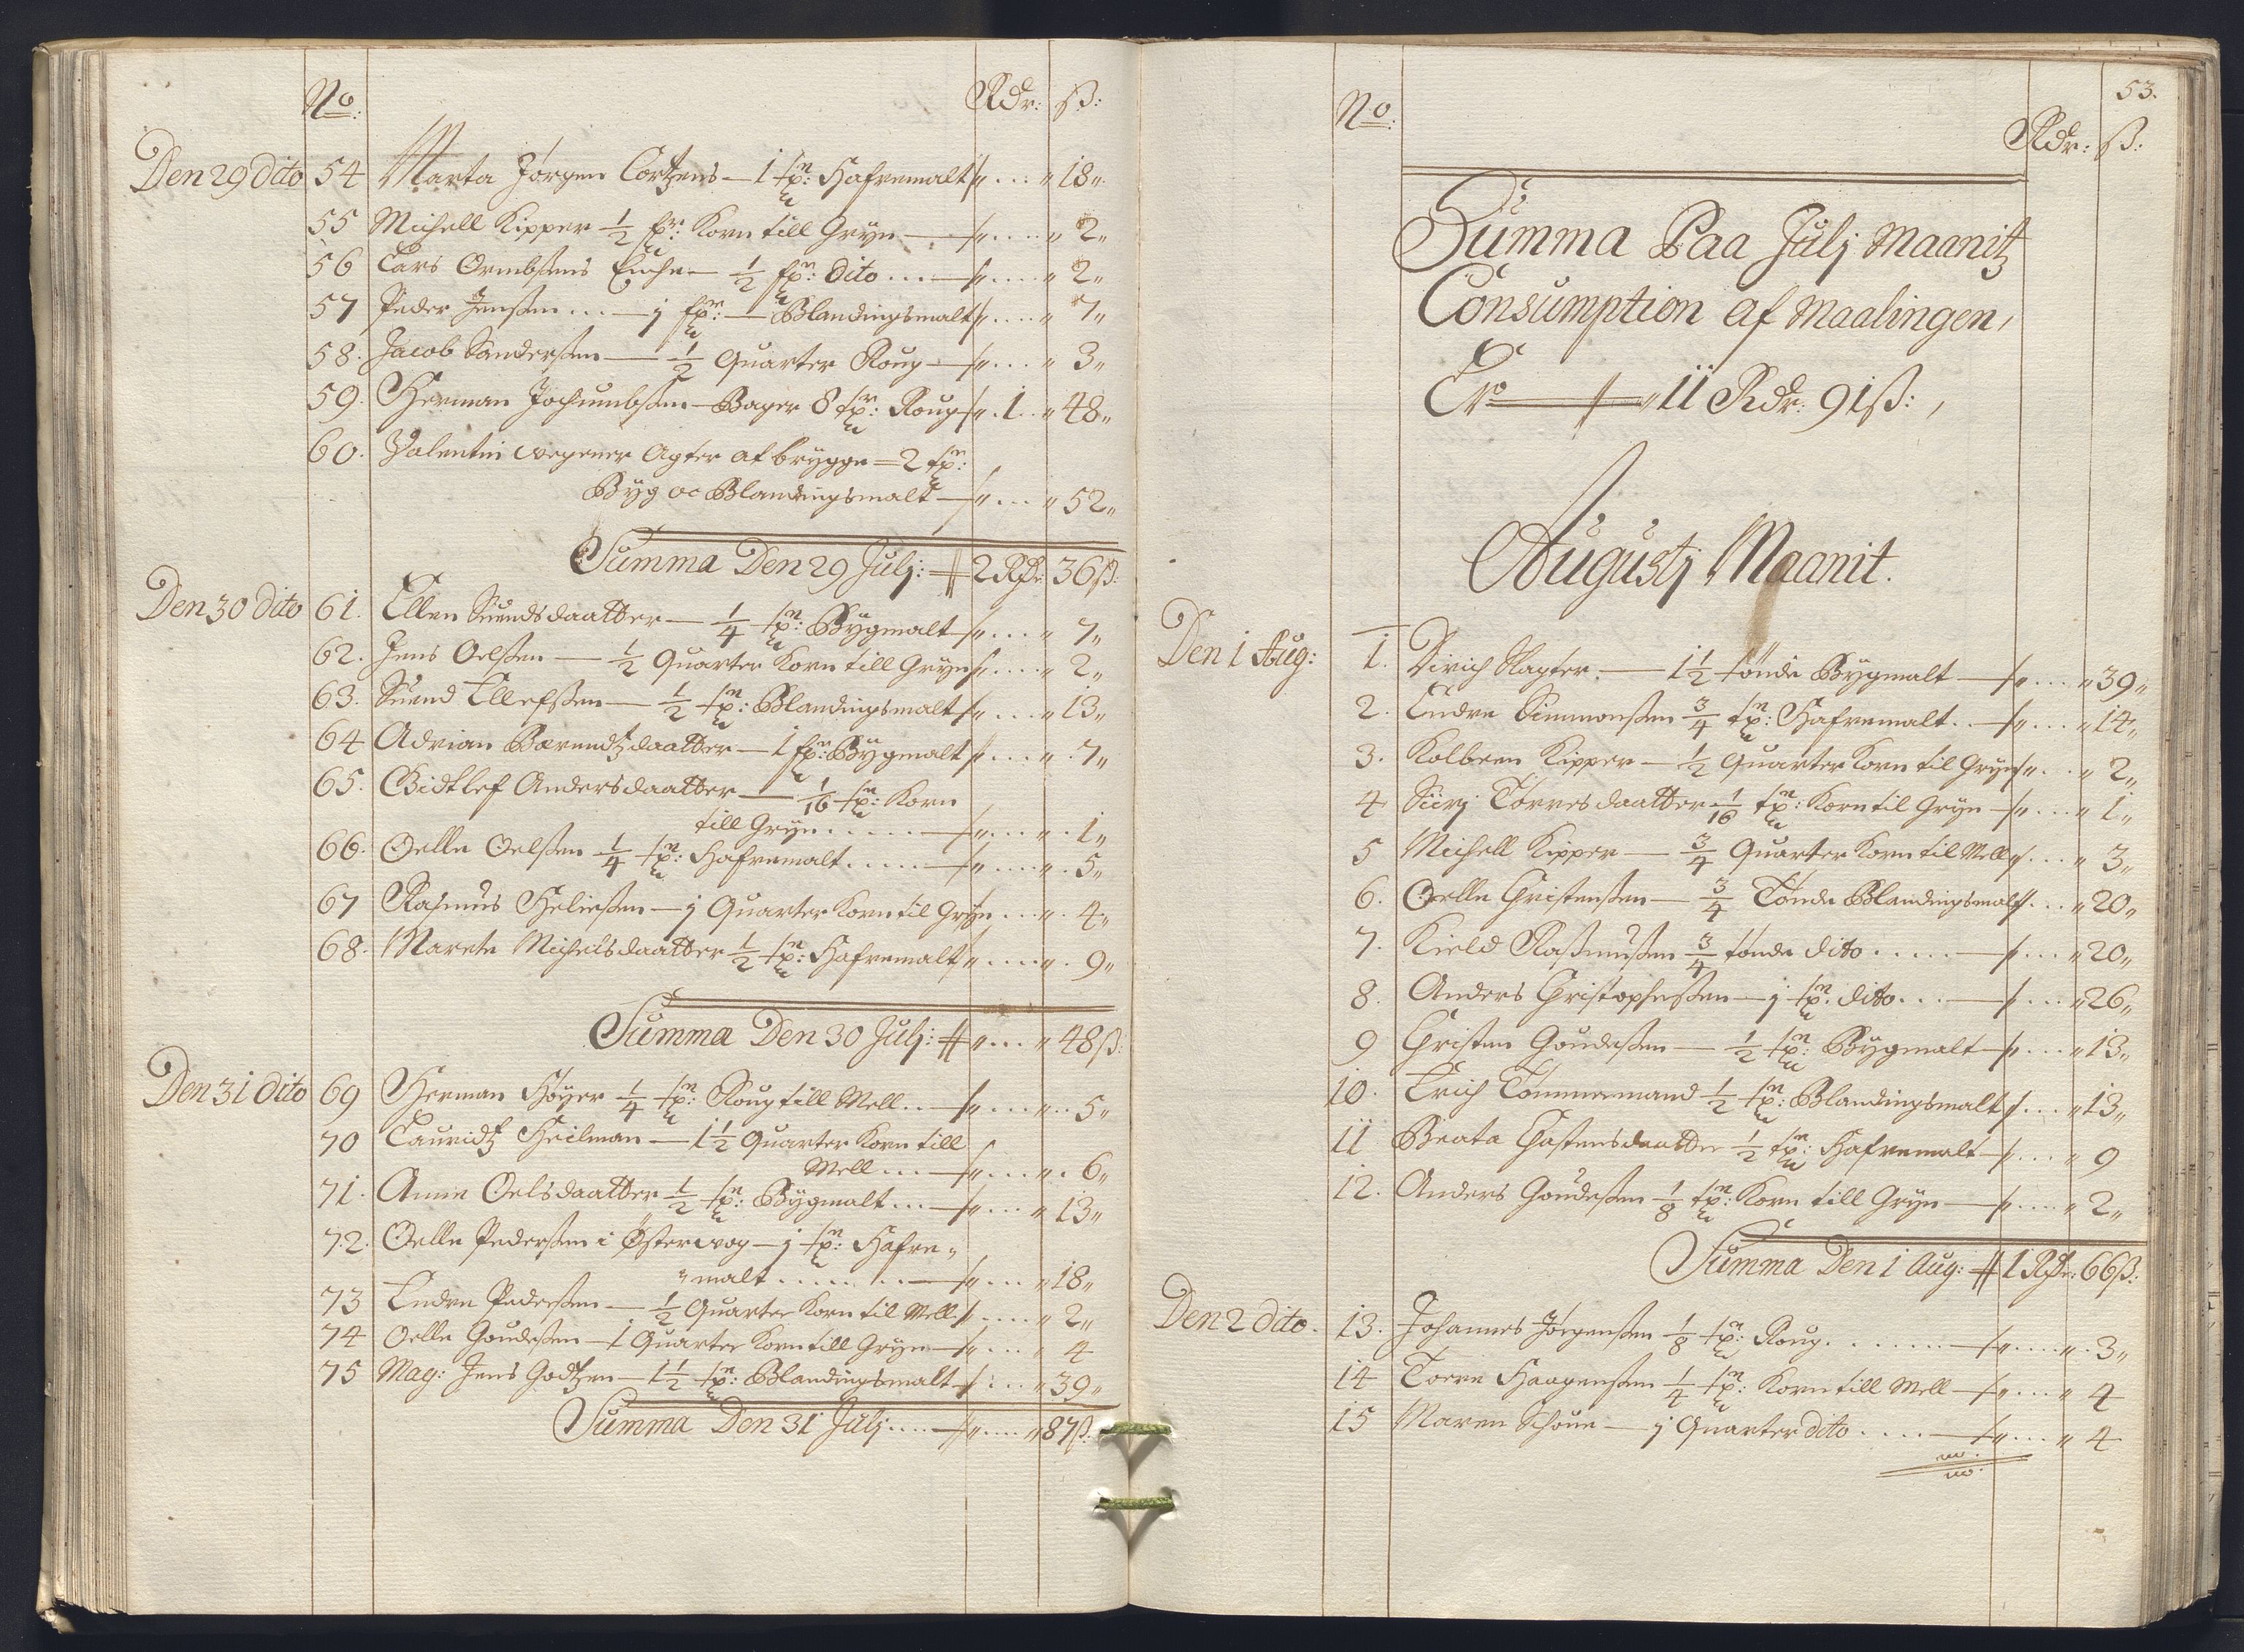 No: Rdr: ß:
Den 29 dito 54 Marta Jørgen Cortzens — 1 tn: Hafremalt „ ... „ 18„
55 Michell Kipper ½ fr: Korn till Gryn — „ .... „ 2„
56 Lars Ormbßens Enche — ½ fr: dito .... — „ .... „ 2„
57 Peder Jenßen ... — j fr: — Blandingsmalt „ .... „ 7„
58. Jacob Sanderßen — ½ Quarter Roug — „ ... „ 3„
59. Herman Jochumbßen Bager 8 tr: Roug „ . 1 .. „ 48„
60. Valentin wegener Agter at brygge = 2 tn:
Byg oc Blandingsmalt — „ ... „ 52„
Summa Den 29 Julj: 2 Rdr: 36 ß:
Den 30 dito 61. Ellen Suendsdaatter — ¼ tn: Bÿgmalt „ ... „ 7„
62. Jens Oelßen — ½ Quarter Korn till Gryn „ .... „ 2„
63. Suend Ellefsßen — ½ tn: Blandingsmalt „ ... „ 13„
64 Adrian Barendtzdaatter — 1 fr: Bÿgmalt „ ... „ . 7„
65. Gidtlef Andersdaatter — 1/16 tn: Korn
till Gryn ..... — „ ... „ . 1„
66. Oelle Oelßen ¼ tn: Hafremalt ..... — „ .... „ . 5„
67 Rasmus Heließen — j Quarter Korn til Gryn ... „ . 4„
68. Marete Michelsdaatter ½ tn: Hafremalt „ .... „ . 9„
Summa Den 30 Julj: „ ... „ 48 ß:
Den 31 dito 69 Herman Høyer ¼ tn: Roug till Mell .. — „ ... „ .. 5„
70 Lauridtz Heilman — 1½ Quarter Korn till
Mell ... — „ ... „ . 6„
71. Anne Oelsdaatter ½ tn: Bÿgmalt ... — „ ... „ 13„
72. Oelle Pederßen i Østervog — j tn: Hafre„
„malt ........ — „ ... „ 18„
73 Endre Pederßen — ½ Quarter Korn til Mell „ .... „ 2„
74 Oelle Goudeßen — 1 Quarter Korn till Gryn — „ ... „ 4
75 Mag: Jens Godtzen — 1½ tn: Blandingsmalt „ ... „ 39„
Summa Den 31 Julj .... — „ .... „ 87 ß:
53.
No: Rdr: ß:
Summa Paa Julj Maanitz
Consumption af Maalingen,
Er — „ 11 Rdr: 91 ß: ,
Augustj Maanit.
Den 1 Aug: 1. Dirich Slagter. — 1½ tønde Bÿgmalt — „ ... „ 39„
2. Endre Simmonßen ¾ tn: Hafremalt .. — „ ... „ 14„
3. Kolbeen Kipper — ½ Quarter Korn til Gryn „ .. „ 2„
4 Siirj Torresdaatter 1/16 tn: Korn til Gryn — „ ... „ 1„
5 Michell Kipper — ¾ Quarter Korn til Mell „ ... „ 3„
6. Oelle Christenßen — ¾ Tønde Blandingsmalt ... „ 20„
7. Kield Rasmußen ¾ tønde dito ..... — ... „ 20„
8. Anders Christopherßen — j tn: dito ... — ... „ 26„
9 Christen Goudeßen — ½ tn: Bÿgmalt — ... „ 13„
10. Erich Tømmermand ½ tn: Blandingsmalt ... „ 13„
11 Beata Castensdaatter ½ tn: Hafremalt — ... „ 9
12. Anders Goudeßen ⅛ tn: Korn till Gryn — .... „ 2„
Summa Den 1 Aug: 1 Rdr: 66 ß:
Den 2 dito. 13. Johannes Jørgenßen ⅛ tn: Roug. ...... — „ .... „ . 3„
14 Torre Haagenßen ¼ tn: Korn till Mell — „ ... „ 4
15 Maren Schoun — j Quarter dito .... — „ ... „ 4